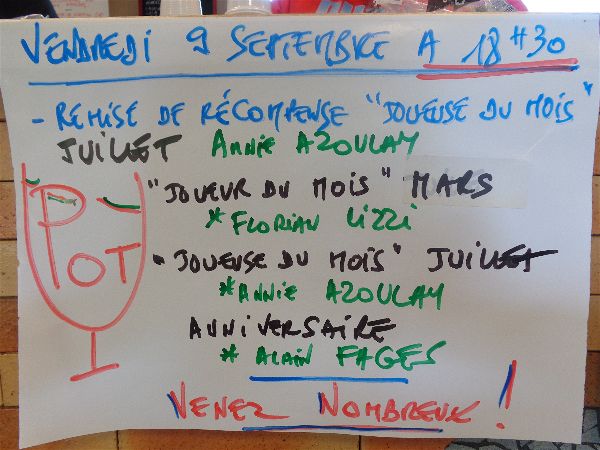 VENDREDI 9 SEPTEMBRE A 18H30
- REMISE DE RÉCOMPENSE "JOUEUSE DU MOIS"
JUILLET ANNIE AZOULAY
"JOUEUR DU MOIS" MARS
* FLORIAN LIZZI
- "JOUEUSE DU MOIS" JUILLET
* ANNIE AZOULAY
ANNIVERSAIRE
* ALAIN FAGES
POT
VENEZ NOMBREUX !